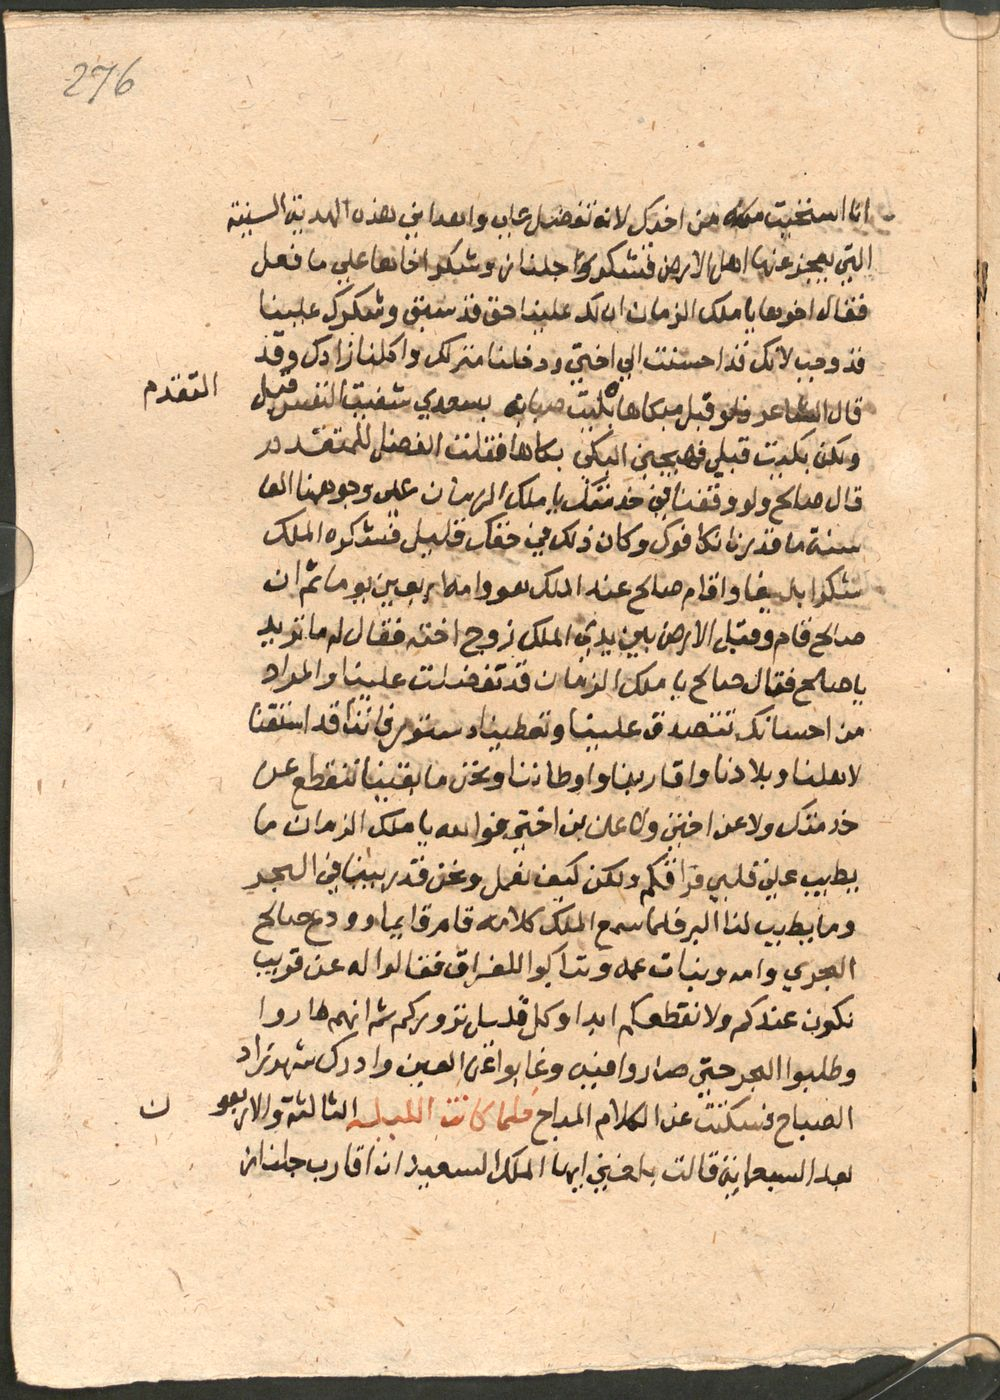 276
انا استحيت منه من اخوك لانه تفضل علي واهداني بهذه الهدية السنية
التي يعجز عنها اهل الارض فشكرته جلناز وشكرا خاها علي ما فعل
فقال اخوها يا ملك الزمان ان لك علينا حق قد سبق وشكرك علينا
قد وجب لانك قد احسنت الي اختي ودخلنا منزلك واكلنا زادك وقد
قال الشاعر فلو قبل مبكاها بكيت صبابة بسعدي شفيت النفس قبل التقدم
ولكن بكيت قبلي فهيجني البكي بكاها فقلت الفضل للمتقدم
قال صالح ولو وقفنا في خدمتك يا ملك الزمان علي وجوهنا الف
سنة ما قدرنا نكافوك وكان ذلك في حقك قليل فشكره الملك
شكرا بليغا واقام صالح عند الملك هو وامه اربعين يوما ثم ان
صالح قام وقبل الارض بين يدي الملك زوج اخته فقال له ما تريد
يا صالح فقال صالح يا ملك الزمان قد تفضلت علينا والمراد
من احسانك تتصدق علينا وتعطينا دستور فاننا قد اشتقنا
لاهلنا وبلادنا واقاربنا واوطاننا ونحن ما بقينا ننقطع عن
خدمتك ولا عن اختي ولا عن بن اختي فوالله يا ملك الزمان ما
يطيب علي قلبي فراقكم ولكن كيف نعمل ونحن قد ربينا في البحر
وما يطيب لنا البر فلما سمع الملك كلامه قام قايما وودع صالح
البحري وامه وبنات عمه وتباكوا للفراق فقالوا له عن قريب
نكون عندكم ولا نقطعكم ابدا وكل قليل نزوركم ثم انهم طاروا
وطلبوا البحر حتي صاروا فيه وغابوا عن العين وادرك شهرزاد
الصباح فسكتت عن الكلام المباح فلما كانت الليلة الثالثة والاربعون
بعد السبعماية قالت بلغني ايها الملك السعيد ان اقارب جلناز